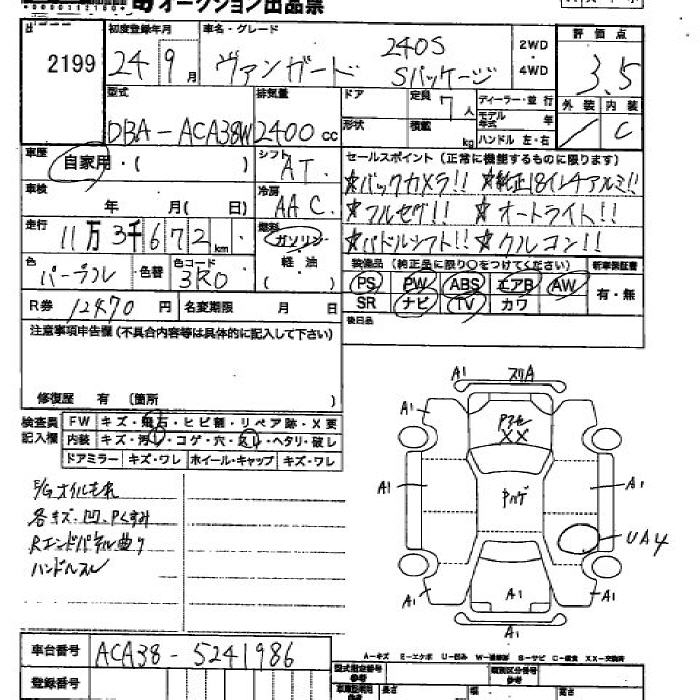 オークション出品票
2199
初度登録年月
24年 9月
車名・グレード
ヴァンガード 240S Sパッケージ
2WD・4WD
評価点
3.5
外装 内装
／ C
型式
DBA-ACA38W
排気量
2400cc
ドア
形状
定員 7人
積載 kg
ディーラー・並行
モデル年式 年
ハンドル 左・右
車歴
自家用・( )
シフト
AT
セールスポイント (正常に機能するものに限ります)
☆バックカメラ!! ☆純正18インチアルミ!!
☆フルセグ!! ☆オートライト!!
☆パドルシフト!! ☆クルコン!!
車検
年 月( 日)
冷房
AAC
走行
11万3千672km
燃料
ガソリン・軽油
( )
色
パープル
色替
色コード
3R0
装備品 (純正品に限り○をつけてください)
新車保証書
PS PW ABS エアB AW
SR ナビ TV カワ
有・無
後日品
R券 12470円
名変期限 月 日
注意事項申告欄(不具合内容等は具体的に記入して下さい)
修復歴 有 (箇所 )
検査員記入欄
FW キズ・飛石・ヒビ割・リペア跡・X要
内装 キズ・汚れ・コゲ・穴・スレ・ヘタリ・破レ
ドアミラー キズ・ワレ ホイール・キャップ キズ・ワレ
E/Gオイルもれ
各キズ・凹・Pくすみ
Rエンドパネル曲り
ハンドルスレ
A1 スリA
A1 A1
XX
A1 A1
Pハゲ
UA4
A1 A1 A1
A1
A-キズ E-エクボ U-凹み W-補修跡 S-サビ C-腐食 XX-交換済
車台番号
ACA38-5241986
登録番号
型式指定番号 参考
類別区分番号 参考
長さ
幅
高さ